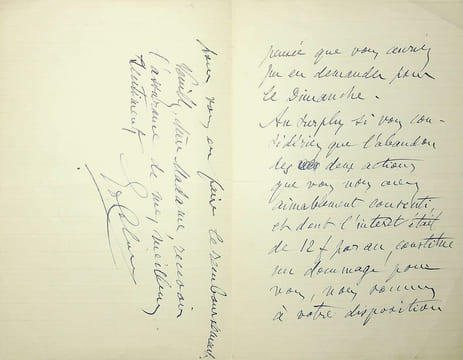 pensée que vous auriez
pu en demander pour
le Dimanche.
Au surplus si vous con-
sidériez que l'abandon
des deux actions
que vous nous avez
aimablement consenti
et dont l'intérêt était
de 12 f par an, constitue
un dommage pour
vous, nous sommes
à votre disposition
pour vous en faire le remboursement
Veuillez, chère Madame, recevoir
l'assurance de mes meilleurs
sentiments